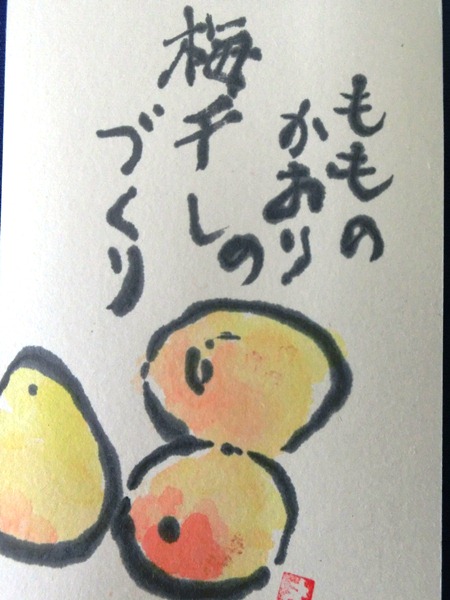 ももの
かおり
梅干しの
づくり